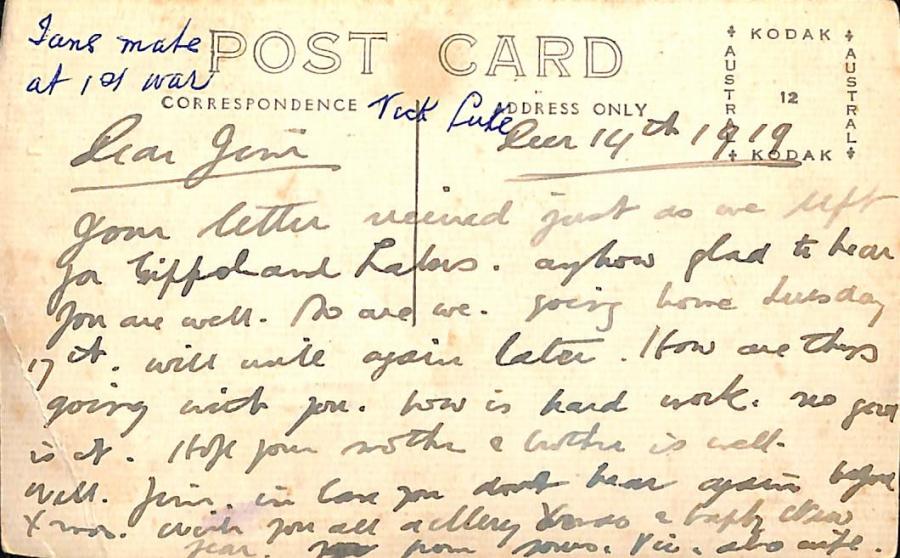 Ians mate
at 1st war
POST CARD
KODAK
AUSTRAL
12
AUSTRAL
KODAK
CORRESPONDENCE
ADDRESS ONLY
Vick
Decr 14th 1919
Dear Jim
Your letter received just as we left
for Gippsland Lakes. anyhow glad to hear
you are well. So are we. going home Tuesday
17th. will write again later. How are things
going with you. how is hard work. no good
is it. Hope your mother & brother is well.
Well. Jim, in case you dont hear again before
Xmas. wish you all a Merry Xmas & happy New
Year. from yours. Vic. also wife.